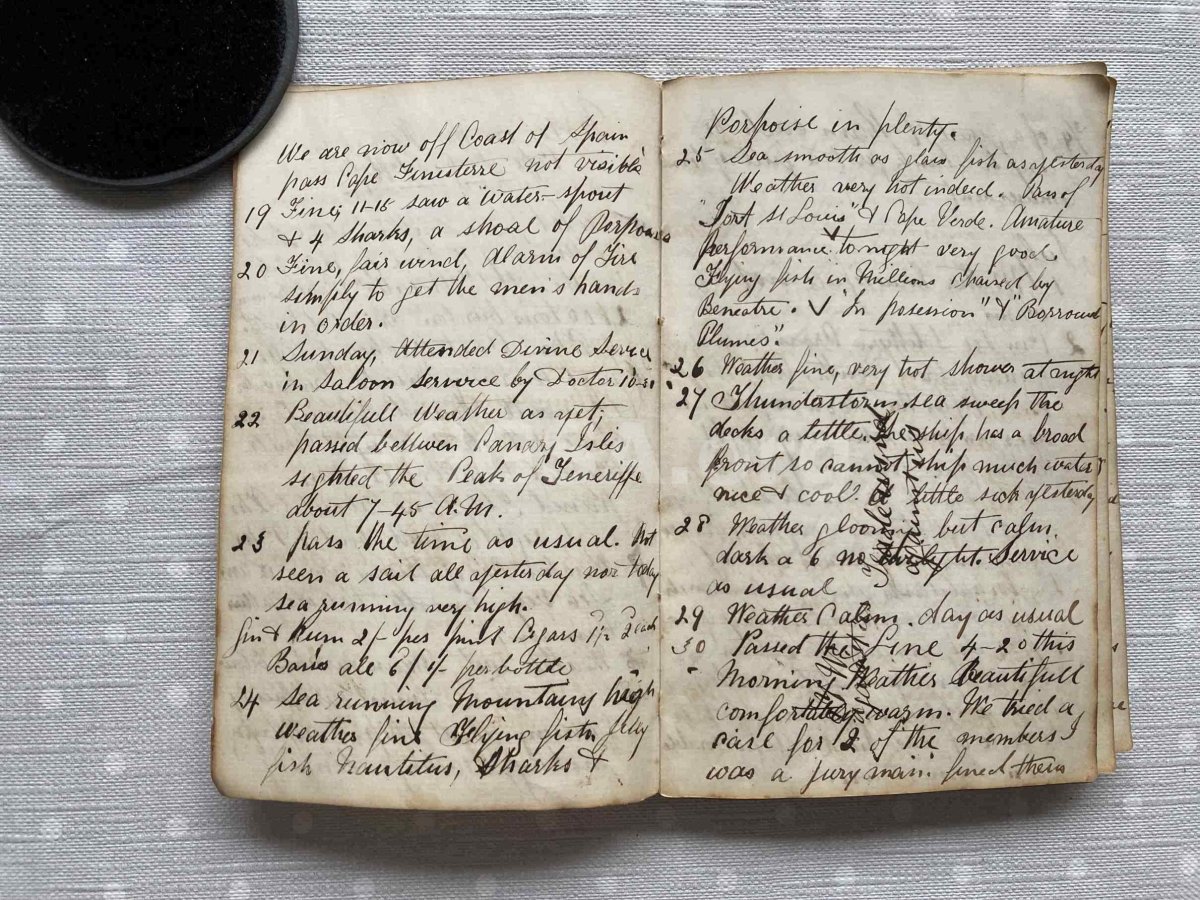 We are now off Coast of Spain
pass Cape Finisterre not visible
19 Fine, 11-15 saw a Water-spout
& 4 Sharks, a shoal of Porpoises
20 Fine, fair wind, Alarm of Fire
simply to get the men's hands
in order.
21 Sunday, Attended Divine Service
in Saloon service by Doctor 10-30
22 Beautifull Weather as yet;
passed bettwen Canary Isles
sighted the Peak of Teneriffe
about 7-45 A.M.
23 pass the time as usual. Not
seen a sail all yesterday nor today
sea running very high.
Gin & Rum 2/- per pint Cigars
ale 6/- per bottle
24 Sea running Mountains high
Weather fine Flying fish, Jelly
fish Nautilus, Sharks &
Porpoise in plenty.
25 Sea smooth as glass fish as yesterday
Weather very hot indeed. Pass of
"Port St Louis" & Cape Verde. Amature
performance to night very good.
Flying fish in Millions Chaired by
"In posession" & "Borrowed
Plumes".
26 Weather fine, very hot shower at night
27 Thunderstorm sea sweep the
decks a little. The ship has a broad
front so cannot ship much water
nice & cool. A little sick yesterday
28 Weather gloomy but calm
dark a 6 no twilight. Service
as usual
29 Weather Calm. day as usual
30 Passed the Line 4-20 this
Morning Weather beautifull
comfortably warm. We tried a
case for 2 of the members I
was a jury man. fined them